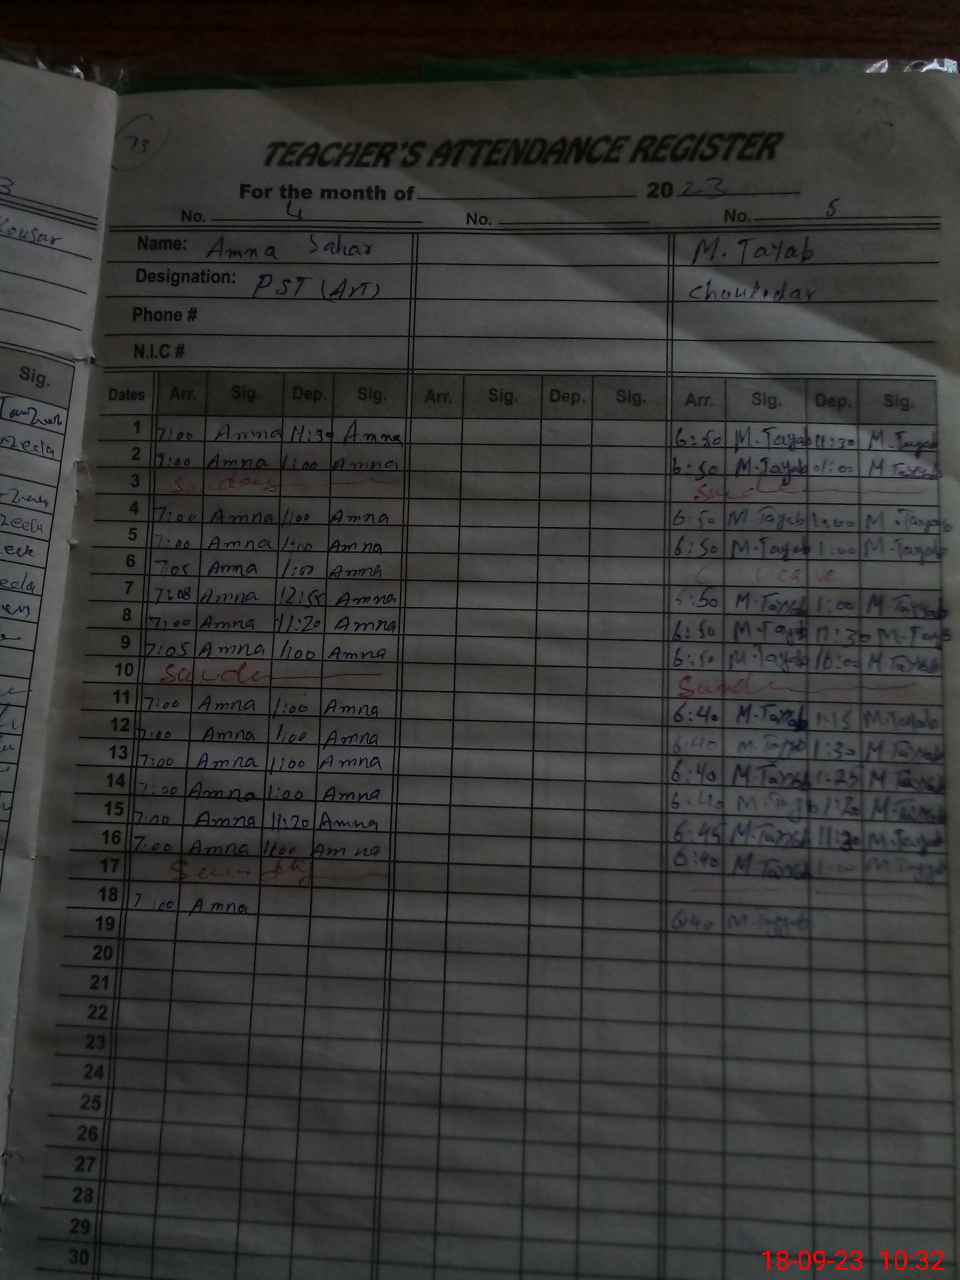 13
TEACHER'S ATTENDANCE REGISTER
For the month of 2023
No. 4 No. No. 5
Name: Amna Sahar M. Tayab
Designation: PST (Art) Choukidar
Phone #
N.I.C #
Dates Arr. Sig. Dep. Sig. Arr. Sig. Dep. Sig. Arr. Sig. Dep. Sig.
1 7:00 Amna 11:30 Amna 6:50 M.Tayab 11:30 M.Tayab
2 7:00 Amna 1:00 Amna 6:50 M.Tayab 01:00 M Tayab
3 Sunday
4 7:00 Amna 1:00 Amna 6:50 M.Tayab 1:00 M.Tayab
5 7:00 Amna 1:00 Amna 6:50 M.Tayab 1:00 M.Tayab
6 7:05 Amna 1:00 Amna leave
7 7:08 Amna 12:55 Amna 6:50 M.Tayab 1:00 M.Tayab
8 7:00 Amna 11:20 Amna 6:50 M.Tayab 11:30 M.Tayab
9 7:05 Amna 1:00 Amna 6:50 M.Tayab M Tayab
10 Sunday Sunday
11 7:00 Amna 1:00 Amna 6:40 M.Tayab 1:15 M.Tayab
12 7:00 Amna 1:00 Amna 6:40 M.Tayab 1:30 M Tayab
13 7:00 Amna 1:00 Amna 6:40 M.Tayab 1:25 M Tayab
14 7:00 Amna 1:00 Amna 6:40 M.Tayab 1:20 M.Tayab
15 7:00 Amna 11:20 Amna 6:45 M.Tayab 11:30 M.Tayab
16 7:00 Amna 1:00 Amna 6:40 M Tayab 1:00 M Tayab
17 Sunday
18 7:00 Amna 6:40 M.Tayab
19
20
21
22
23
24
25
26
27
28
29
30
Kousar
Sig.
18-09-23 10:32